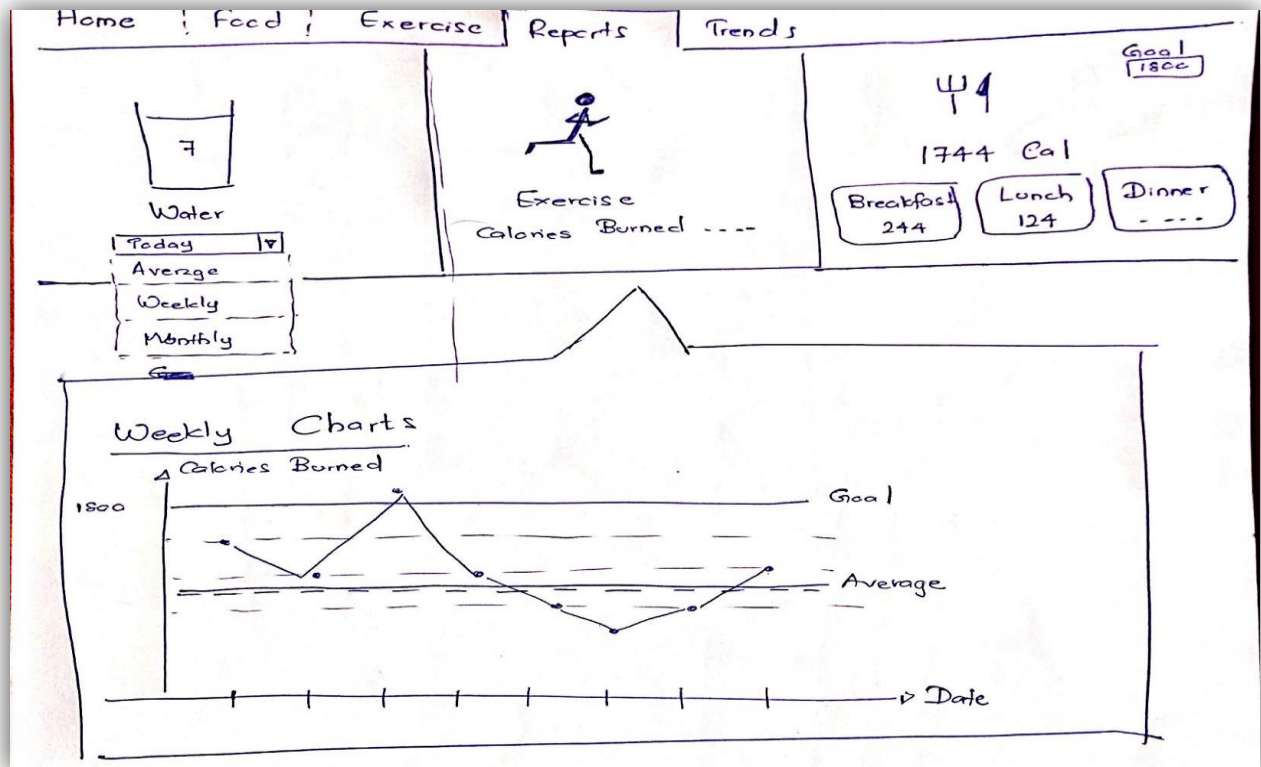 Home Food Exercise Reports Trends
Goal
1800
7
Water
Today
Average
Weekly
Monthly
Exercise
Calories Burned ----
1744 Cal
Breakfast
244
Lunch
124
Dinner
----
Weekly Charts
Calories Burned
1800
Goal
Average
Date